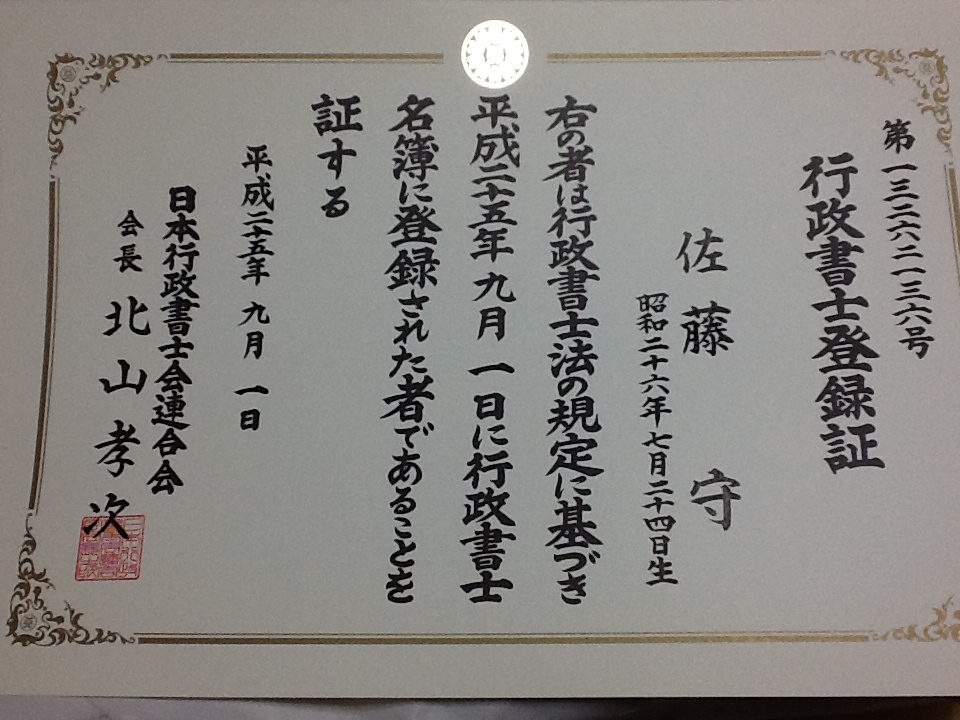 第一三二六二一三六号
行政書士登録証
佐藤守
昭和二十六年七月二十四日生
右の者は行政書士法の規定に基づき
平成二十五年九月一日に行政書士
名簿に登録された者であることを
証する
平成二十五年九月一日
日本行政書士会連合会
会長 北山孝次